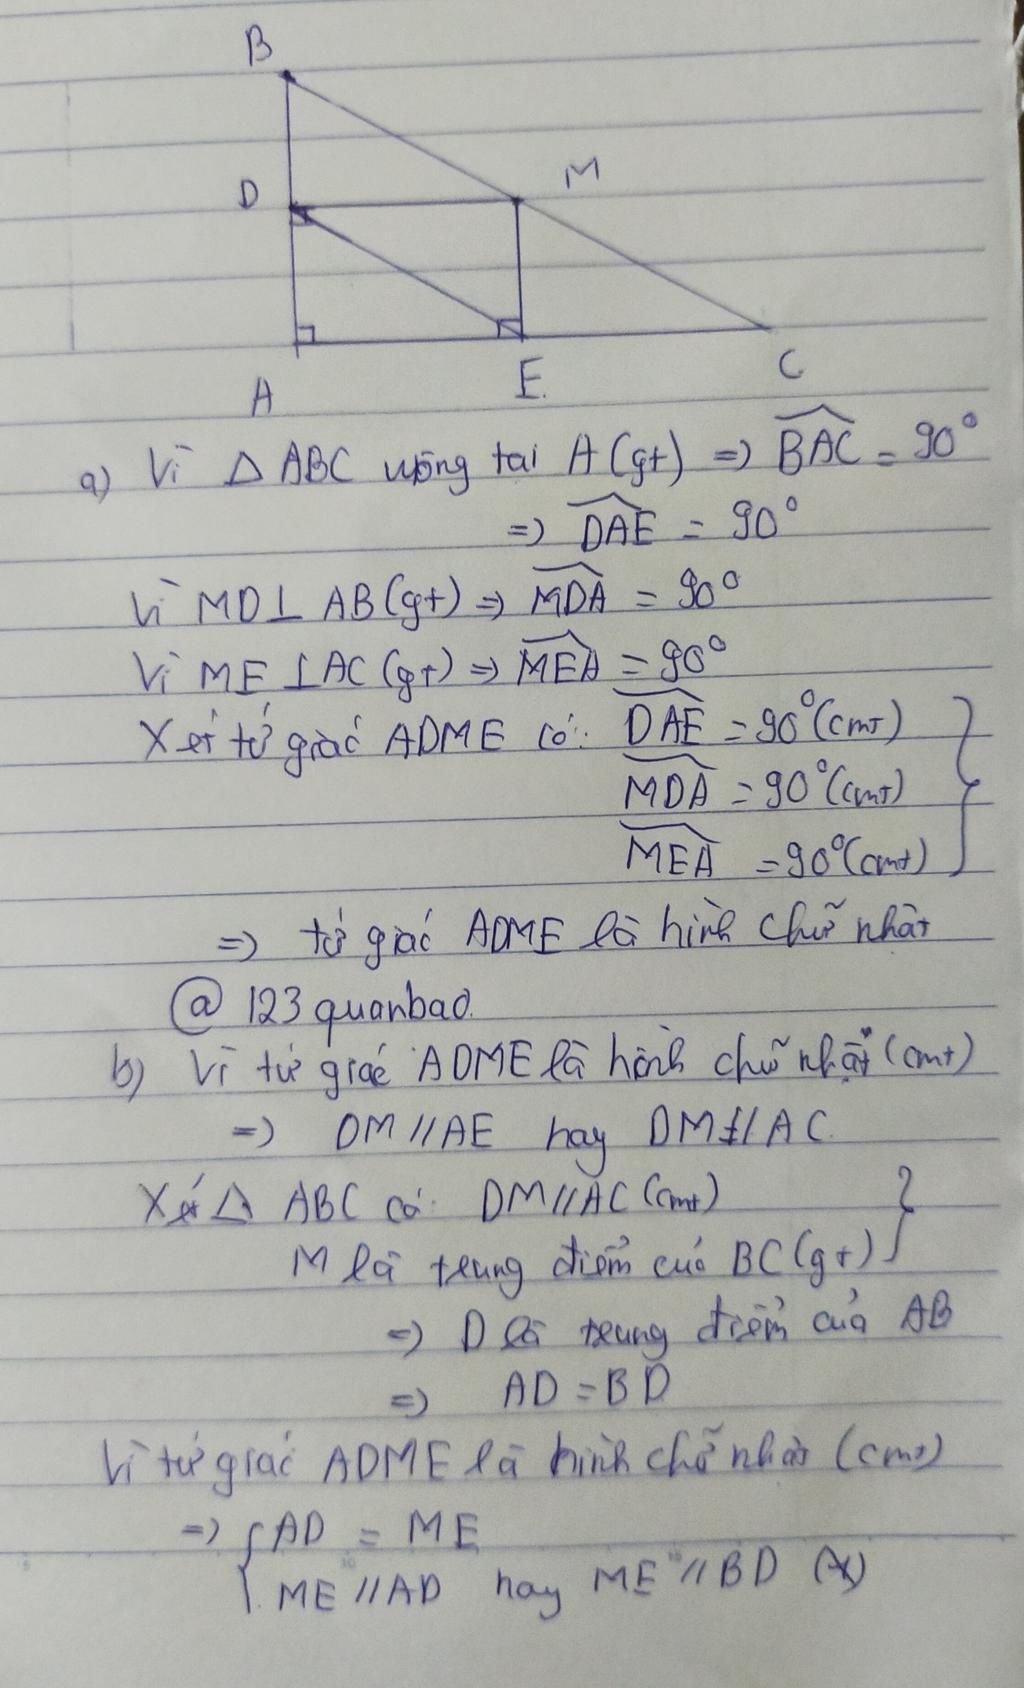 B
D
M
A
E
C
a) Vì △ ABC vuông tại A (gt) => BAC = 90°
=> DAE = 90°
Vì MD⊥ AB (gt) => MDA = 90°
Vì ME ⊥ AC (gt) => MEA = 90°
Xét tứ giác ADME có: DAE = 90° (cmt)
MDA = 90° (cmt)
MEA = 90° (cmt)
=> tứ giác ADME là hình chữ nhật
@ 123quanbao.
b) Vì tứ giác ADME là hình chữ nhật (cmt)
=> DM // AE hay DM // AC.
Xét △ ABC có: DM // AC (cmt)
M là trung điểm của BC (gt)
=> D là trung điểm của AB
=> AD = BD
Vì tứ giác ADME là hình chữ nhật (cmt)
=> { AD = ME
ME // AD hay ME // BD (*)